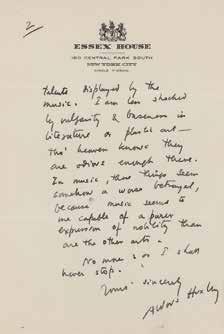 2
ESSEX HOUSE
160 CENTRAL PARK SOUTH
NEW YORK CITY
talents displayed by the
music. I am less shocked
by vulgarity & baseness in
literature or plastic art —
tho' heaven knows they
are odious enough there.
In music, these things seem
somehow a worse betrayal,
because music seems to
me capable of a purer
expression of nobility than
are the other arts.
No more or I shall
never stop.
Yours sincerely
Aldous Huxley